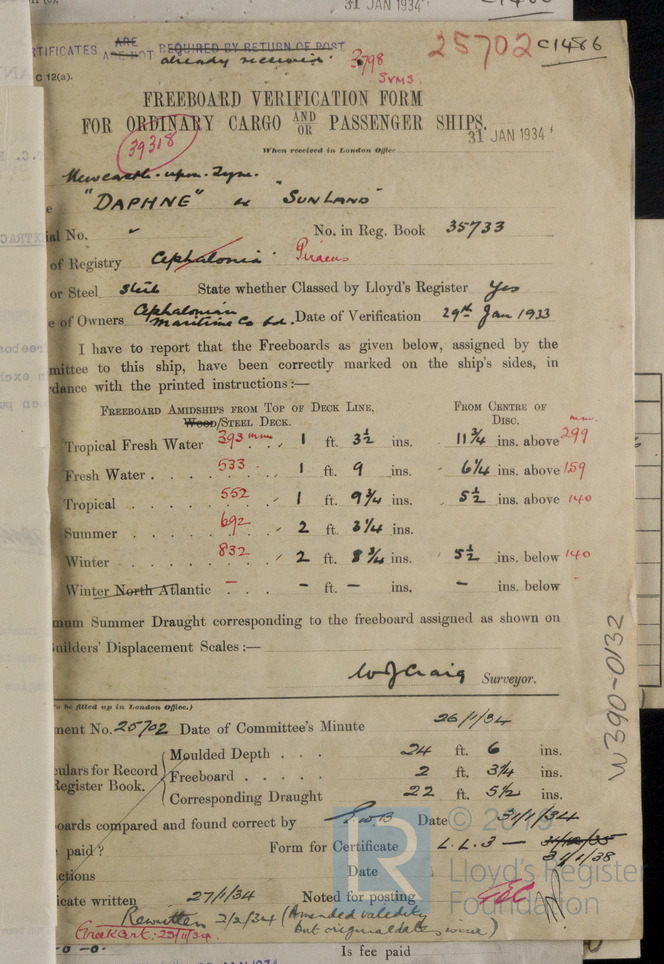 31 JAN 1934
25702 C1486
RTIFICATES ARE NOT REQUIRED BY RETURN OF POST
already received. 3798
C 12(a). SVMS
FREEBOARD VERIFICATION FORM
FOR ORDINARY CARGO AND OR PASSENGER SHIPS.
39318 31 JAN 1934
When received in London Office
Newcastle-upon-Tyne.
e "DAPHNE" ex "SUNLAND"
ial No. " No. in Reg. Book 35733
of Registry Cephalonia Piraeus
or Steel Steel State whether Classed by Lloyd's Register Yes
e of Owners Cephalonian Maritime Co Ld. Date of Verification 29th Jan 1933
I have to report that the Freeboards as given below, assigned by the
mittee to this ship, have been correctly marked on the ship's sides, in
dance with the printed instructions :—
FREEBOARD AMIDSHIPS FROM TOP OF DECK LINE, FROM CENTRE OF
Wood/STEEL DECK. DISC. mm.
Tropical Fresh Water 393 mm 1 ft. 3½ ins. 11¾ ins. above 299
Fresh Water . . . 533 1 ft. 9 ins. 6¼ ins. above 159
Tropical . . . 552 1 ft. 9¾ ins. 5½ ins. above 140
Summer . . . 692 2 ft. 3¼ ins.
Winter . . . 832 2 ft. 8¾ ins. 5½ ins. below 140
Winter North Atlantic – – ft. – ins. – ins. below –
mum Summer Draught corresponding to the freeboard assigned as shown on
uilders' Displacement Scales :—
W J Craig Surveyor.
W390-0132
o be filled up in London Office.)
ment No. 25702 Date of Committee's Minute 26/1/34
Moulded Depth . . . 24 ft. 6 ins.
culars for Record
Register Book.
Freeboard . . . . . 2 ft. 3¼ ins.
Corresponding Draught 22 ft. 5½ ins.
oards compared and found correct by Date 31/1/34
paid ? Form for Certificate L.L.3 — 31/12/35
31/1/38
ctions Date
icate written 27/1/34 Noted for posting
Rewritten 2/2/34 (Amended validity
but original dates )
Is fee paid
© 2019
Lloyd's Register
Foundation